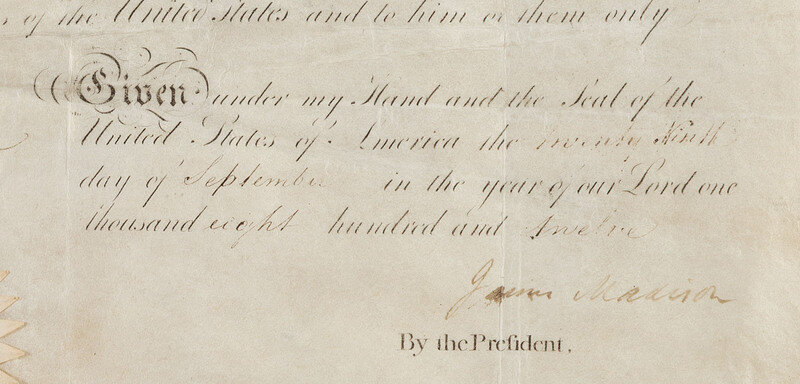 r of the United States and to him or them only
Given under my Hand and the Seal of the
United States of America the twenty Ninth
day of September in the year of our Lord one
thousand eight hundred and twelve
James Madison
By the Preſident,